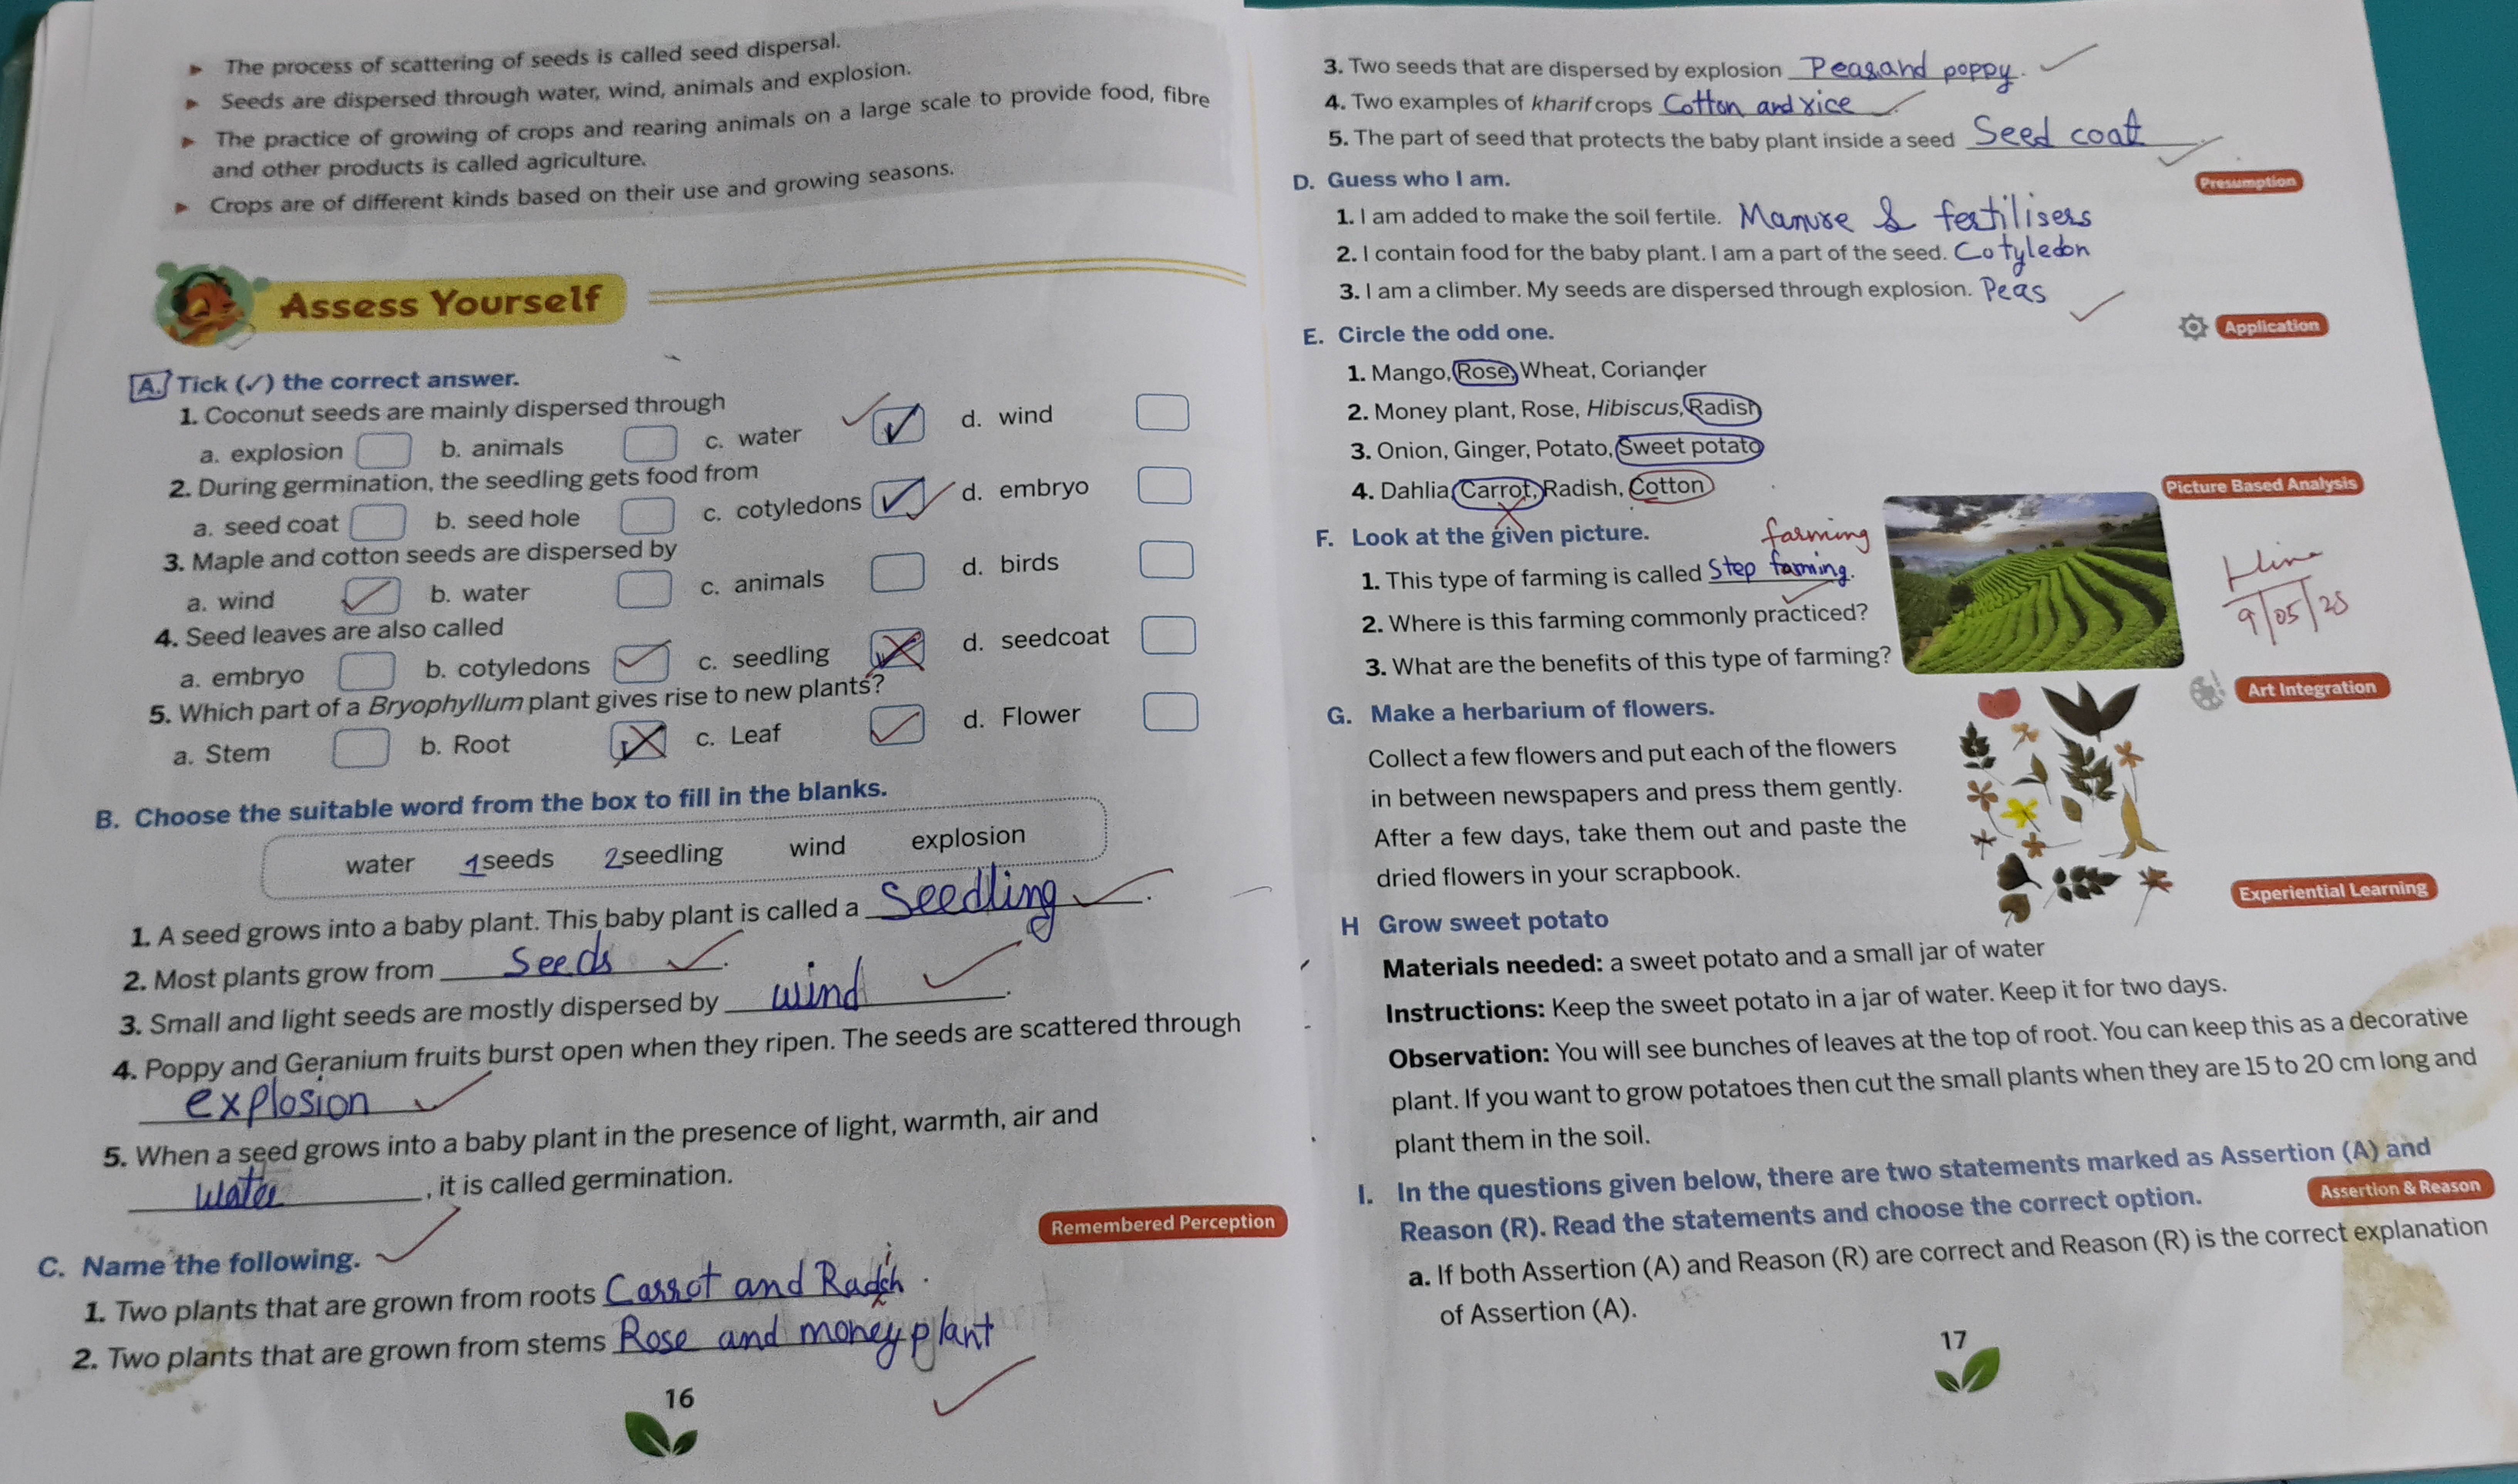 ► The process of scattering of seeds is called seed dispersal.
► Seeds are dispersed through water, wind, animals and explosion.
► The practice of growing of crops and rearing animals on a large scale to provide food, fibre
and other products is called agriculture.
► Crops are of different kinds based on their use and growing seasons.
Assess Yourself
A. Tick (✓) the correct answer.
1. Coconut seeds are mainly dispersed through
a. explosion b. animals c. water ✓ d. wind
2. During germination, the seedling gets food from
a. seed coat b. seed hole c. cotyledons ✓ d. embryo
3. Maple and cotton seeds are dispersed by
a. wind ✓ b. water c. animals d. birds
4. Seed leaves are also called
a. embryo b. cotyledons ✓ c. seedling d. seedcoat
5. Which part of a Bryophyllum plant gives rise to new plants?
a. Stem b. Root c. Leaf ✓ d. Flower
B. Choose the suitable word from the box to fill in the blanks.
water 1seeds 2seedling wind explosion
1. A seed grows into a baby plant. This baby plant is called a Seedling.
2. Most plants grow from Seeds.
3. Small and light seeds are mostly dispersed by wind.
4. Poppy and Geranium fruits burst open when they ripen. The seeds are scattered through
explosion
5. When a seed grows into a baby plant in the presence of light, warmth, air and
, it is called germination.
Remembered Perception
C. Name the following.
1. Two plants that are grown from roots Carrot and
2. Two plants that are grown from stems Rose and money plant
16
3. Two seeds that are dispersed by explosion Peas and poppy.
4. Two examples of kharif crops Cotton and rice
5. The part of seed that protects the baby plant inside a seed Seed coat.
D. Guess who I am.
Presumption
1. I am added to make the soil fertile. Manure & fertilisers
2. I contain food for the baby plant. I am a part of the seed. Cotyledon
3. I am a climber. My seeds are dispersed through explosion. Peas
E. Circle the odd one.
Application
1. Mango, Rose, Wheat, Coriander
2. Money plant, Rose, Hibiscus, Radish
3. Onion, Ginger, Potato, Sweet potato
4. Dahlia, Carrot, Radish, Cotton
Picture Based Analysis
F. Look at the given picture.
farming
1. This type of farming is called Step farming.
2. Where is this farming commonly practiced?
3. What are the benefits of this type of farming?
9/05/25
Art Integration
G. Make a herbarium of flowers.
Collect a few flowers and put each of the flowers
in between newspapers and press them gently.
After a few days, take them out and paste the
dried flowers in your scrapbook.
Experiential Learning
H Grow sweet potato
Materials needed: a sweet potato and a small jar of water
Instructions: Keep the sweet potato in a jar of water. Keep it for two days.
Observation: You will see bunches of leaves at the top of root. You can keep this as a decorative
plant. If you want to grow potatoes then cut the small plants when they are 15 to 20 cm long and
plant them in the soil.
I. In the questions given below, there are two statements marked as Assertion (A) and
Reason (R). Read the statements and choose the correct option.
Assertion & Reason
a. If both Assertion (A) and Reason (R) are correct and Reason (R) is the correct explanation
of Assertion (A).
17